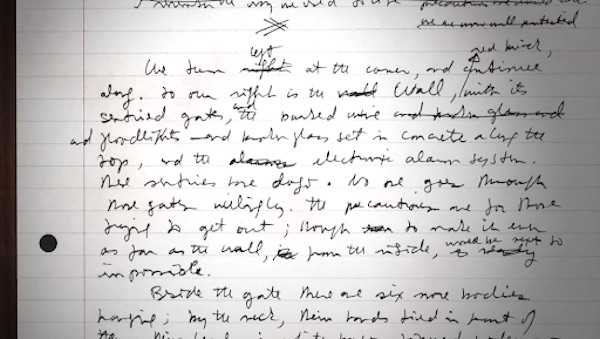 the way we used to
we are now well protected
left red brick,
We turn right at the corner, and continue
along. To our right is the wall Wall, with its
sentried gates, and the barbed wire and broken glass and
and floodlights — and broken glass set in concrete along the
top, and the alarms electronic alarm system.
These sentries have dogs. No one goes through
those gates willingly. The precautions are for those
trying to get out; though to make it even
as far as the wall, from the inside, would be next to
impossible.
Beside the gate there are six more bodies
hanging; by the neck, their hands tied in front of